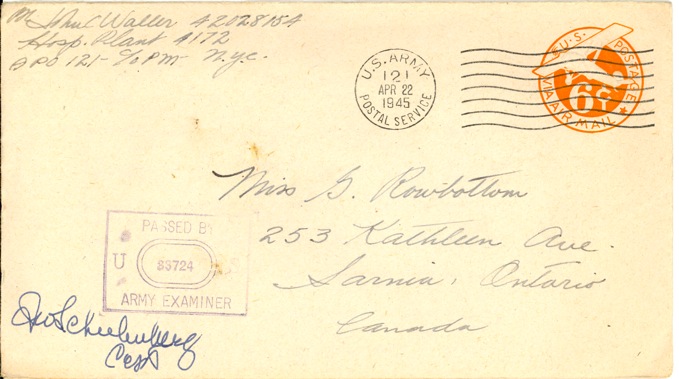 John C Waller 42028154
Hosp. Plant 4172
APO 121 - c/o PM - N.Y.C.
U.S. ARMY
121
APR 22
1945
POSTAL SERVICE
U.S. POSTAGE
6¢
VIA AIR MAIL
Miss G. Rowbottom
253 Kathleen Ave.
Sarnia, Ontario
Canada
PASSED BY
U
ARMY EXAMINER
Capt